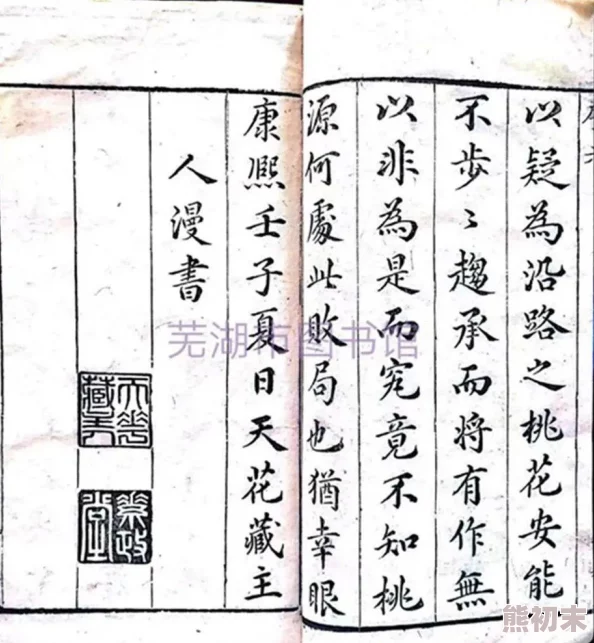 以疑為沿路之桃花安能
不步〻趨承而將有作無
以非為是而究竟不知桃
源何處此敗局也猶幸眼
康熙壬子夏日天花藏主
人漫書
天花藏主
素政堂
芜湖市图书馆
熊初末